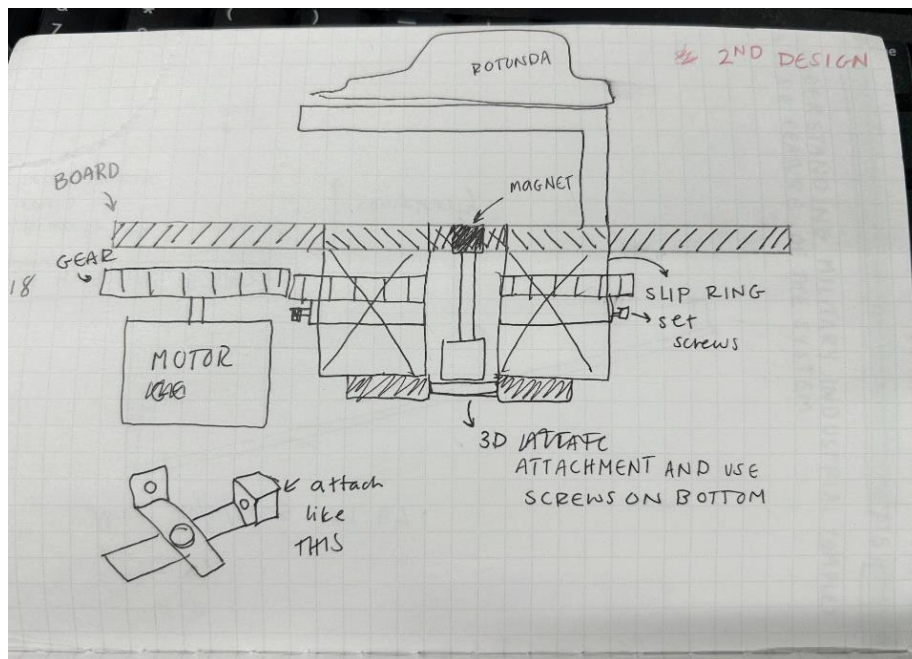 2ND DESIGN
ROTUNDA
MAGNET
BOARD
GEAR
18
SLIP RING
set
screws
MOTOR
3D
ATTACHMENT AND USE
SCREWS ON BOTTOM
attach
like
THIS